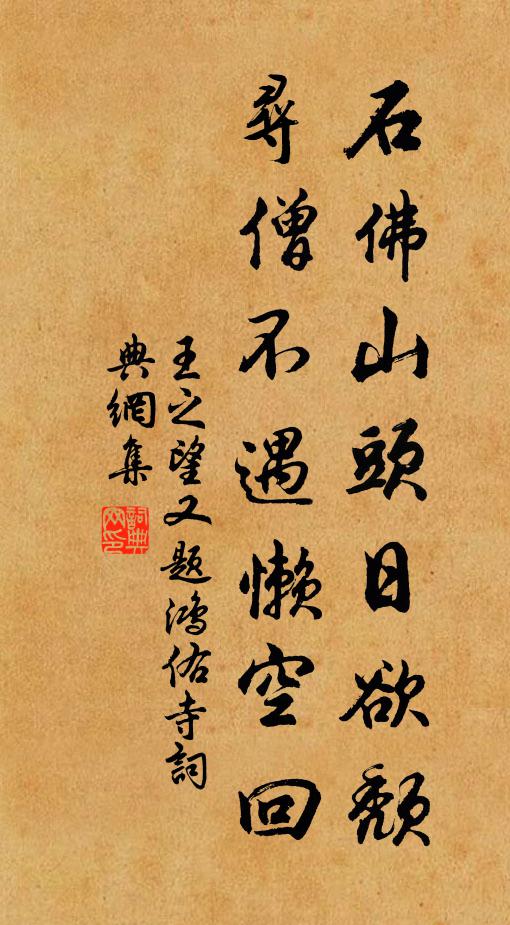 石佛山頭日欲頹
尋僧不遇懶空回
王之望又題鴻佑寺詞
典網集
詞典網印